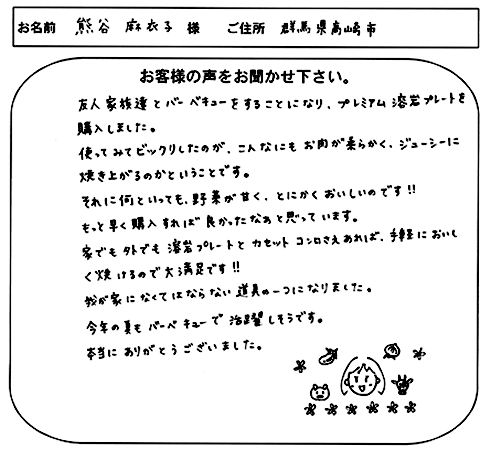 お名前 熊谷 麻衣子 様 ご住所 群馬県高崎市
お客様の声をお聞かせ下さい。
友人家族達とバーベキューをすることになり、プレミアム溶岩プレートを
購入しました。
使ってみてビックリしたのが、こんなにもお肉が柔らかく、ジューシーに
焼き上がるのかということです。
それに何といっても、野菜が甘く、とにかくおいしいのです!!
もっと早く購入すれば良かったなあと思っています。
家でも外でも溶岩プレートとカセットコンロさえあれば、手軽においし
く焼けるので大満足です!!
我が家になくてはならない道具の一つになりました。
今年の夏もバーベキューで活躍しそうです。
本当にありがとうございました。